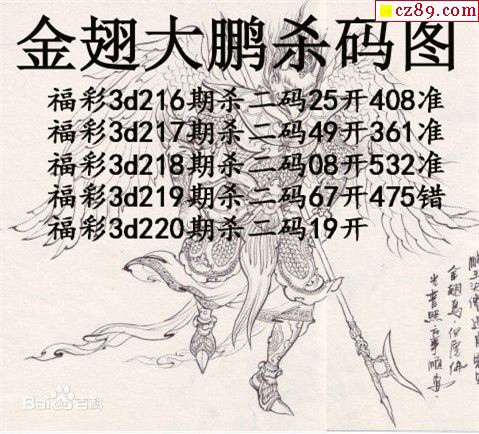 cz89.com
金翅大鹏杀码图
福彩3d216期杀二码25开408准
福彩3d217期杀二码49开361准
福彩3d218期杀二码08开532准
福彩3d219期杀二码67开475错
福彩3d220期杀二码19开
Bai百科